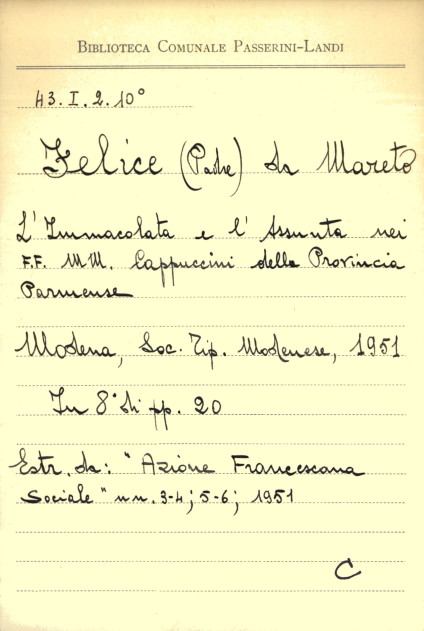 BIBLIOTECA COMUNALE PASSERINI-LANDI
43. I. 2. 10°
Felice (Padre) da Mareto
L'Immacolata e l'Assunta nei
F.F. MM. Cappuccini della Provincia
Parmense
Modena, Soc. Tip. Modenese, 1951
In 8° di pp. 20
Estr. da: "Azione Francescana
Sociale" nn. 3-4; 5-6; 1951
C